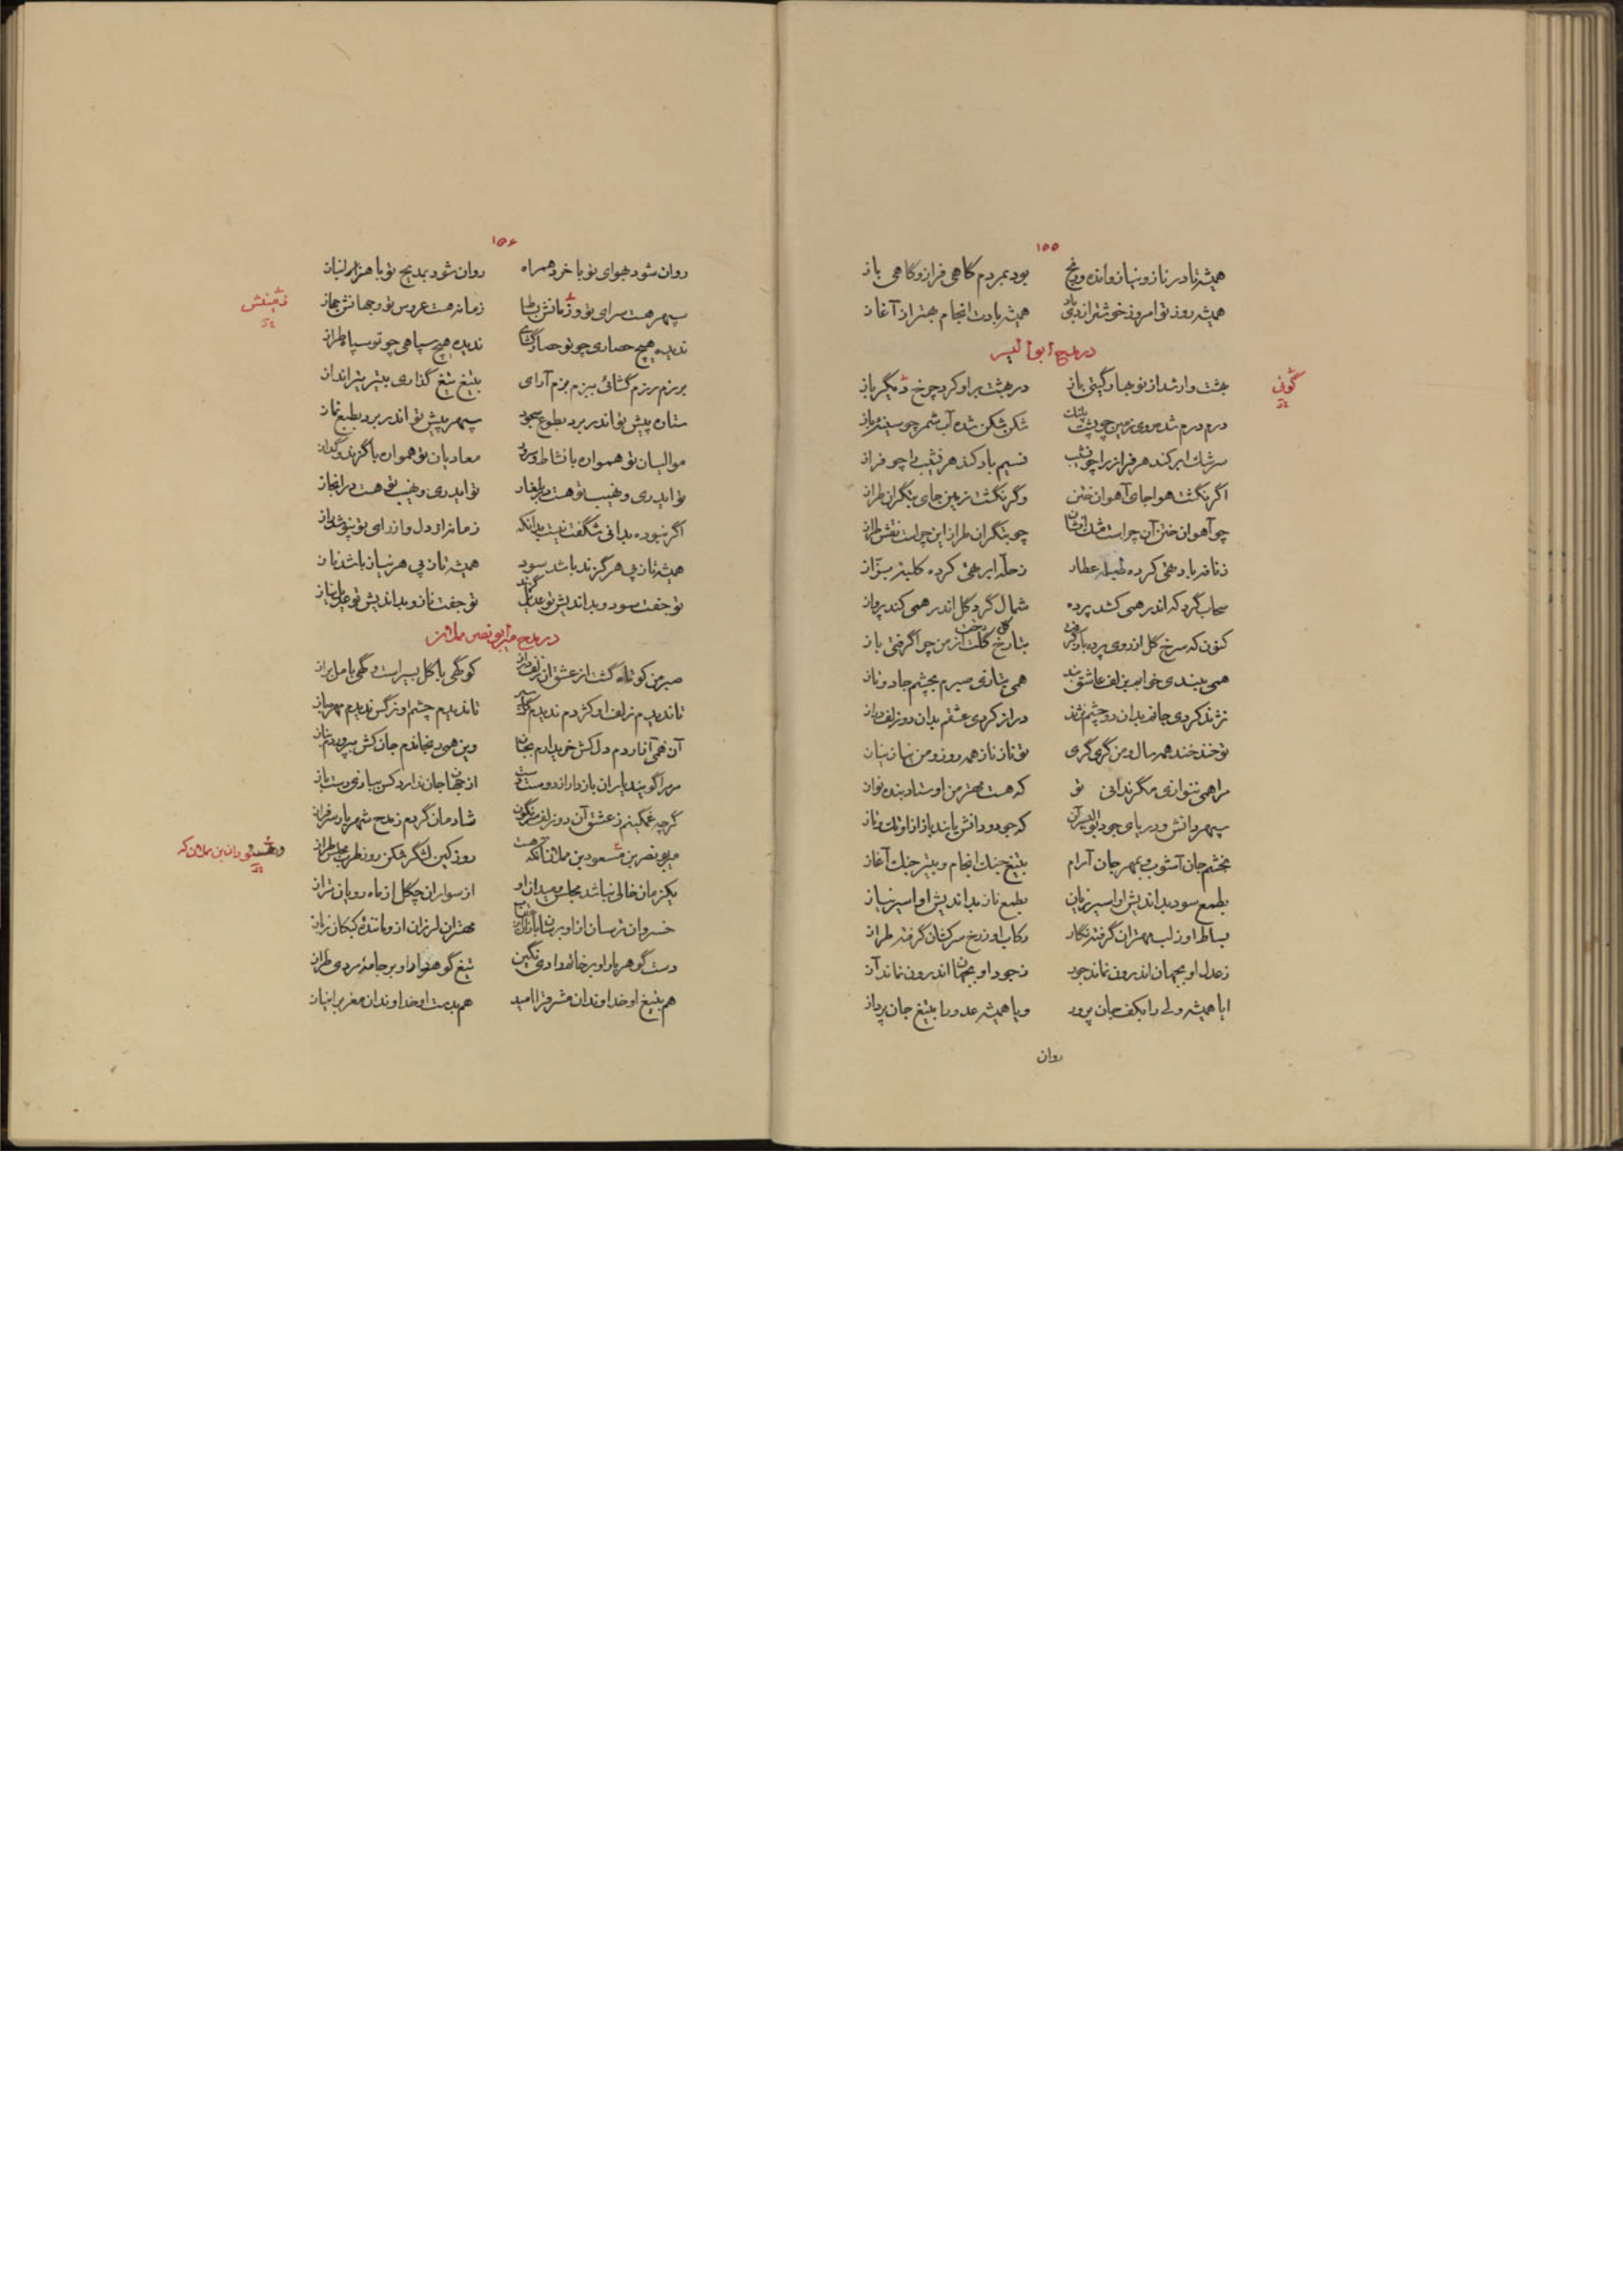 ۱۵۵
همیشه تا در ناز و نیاز و انده و رنج بود بمردم گاهی فراز و گاهی باز
همیشه روز تو امروز خوشتر از دی باد همیشه بادت انجام بهتر از آغاز
در مدح ابوالیسر
بهشت وار شد از نوبهار گیتی باز در بهشت بر او کرد چرخ دیگر باز
گوئی
درم درم شده روی زمین چو پشت پلنگ شکن شکن شده آب شمر چو سینهٔ باز
سرشک ابر کند هر فراز را چو نشیب نسیم باد کند هر نشیب را چو فراز
اگر نگشت هوا جای آهوان ختن وگر نگشت زمین جای بتگران طراز
چو آهوان ختن آن چراست مشک افشان چو بتگران طراز این چراست نقش طراز
ز نافه باد تهی کرده طبلهٔ عطار ز حله ابر تهی کرده کلبهٔ بزاز
سحاب گرد که اندر همی کشد پرده شمال گرد گل اندر همی کند پرواز
کنون که سرخ گل از روی پرده باز گرفت بتا رخ گلت از من چرا گرفتی باز
گل رخت
همی ببندی خوابم بزلف عاشق بند همی بتازی صبرم بچشم جادو تاز
نژند کردی جانم بدان دو چشم نژند دراز کردی عشقم بدان دو زلف دراز
تو خند خند همه سال و من گری گری تو ناز ناز همه روز و من نیاز نیاز
مرا همی ننوازی مگر ندانی تو که هست مهتر من اوستاد بنده نواز
سپهر دانش و دریای جود ابوالیسر آن که جود و دانش یابند باز از او تک و تاز
بخشم جان آشوب بمهر جان آرام بتیغ جنگ انجام و بتیر جنگ آغاز
بطمع سود بداندیش او اسیر زیان بطمع ناز بداندیش او اسیر نیاز
بساط او ز لب مهتران گرفته نگار رکاب او ز رخ سرکشان گرفته طراز
ز عدل او بجهان اندرون نماند جور ز جود او بجهان اندرون نماند آز
ایا همیشه ولی را بکف جان پرور و یا همیشه عدو را بتیغ جان پرداز
روان
۱۵۶
روان شود بهوای تو با خرد همراه روان شود بمدیح تو با هنر انباز
سپهر هست سرای تو و زمانش بساط زمانه هست عروس تو و جهانش جهاز
زمینش
ندیده هیچ حصاری چو تو حصار گشای ندیده هیچ سپاهی چو تو سپاه طراز
برزم رزم گشائی ببزم بزم آرای بتیغ تیغ گذاری بتیر تیر انداز
ستاره پیش تو اندر برد بطوع سجود سپهر پیش تو اندر برد بطبع نماز
موالیان تو همواره با نشاط و سرود معادیان تو همواره با گزند و گداز
تو ایدری و نهیب تو هست در بلغار تو ایدری و نهیب تو هست در ابخاز
اگر نبوده بدانی شگفت نیست بدانکه زمانه از دل و از رای تو نپوشد راز
همیشه تا ز پی هر گزند باشد سود همیشه تا ز پی هر نیاز باشد ناز
تو جفت سود و بداندیش تو عدیل گزند تو جفت ناز و بداندیش تو عدیل نیاز
در مدح میر ابونصر مملان
صبر من کوتاه گشت از عشق آن زلف دراز کو گهی با گل بسیر است و گهی با مل براز
تا ندیدم زلف او کژدم ندیدم گل سپر تا ندیدم چشم او نرگس ندیدم مهره باز
آن همی آزاردم دل کش خریدارم بجان وین همی رنجاندم جان کش بپروردم بناز
مر مرا گویند یاران باز دار از دوست دست از جهان جان ندارد کس بیازی دست باز
گرچه غمگینم ز عشق آن دو زلف سرنگون شادمان گردم ز مدح شهریار سرفراز
میر ابونصر بن مسعود بن مملان آنکه هست روز کین لشگر شکن روز طرب مجلس طراز
وهسودان بن مملان که
یکزمان خالی نباشد مجلس و میدان او از سواران چگل از ماه رویان طراز
خسروان ترسان از او برسان تیهو از عقاب مهتران لرزان ازو مانندهٔ کبکان ز باز
دست گوهربار او بر خاتم رادی نگین تیغ گوهردار او بر جامهٔ مردی طراز
هم بتیغ او خداوندان مشرق را امید هم بدست او خداوندان مغرب را نیاز